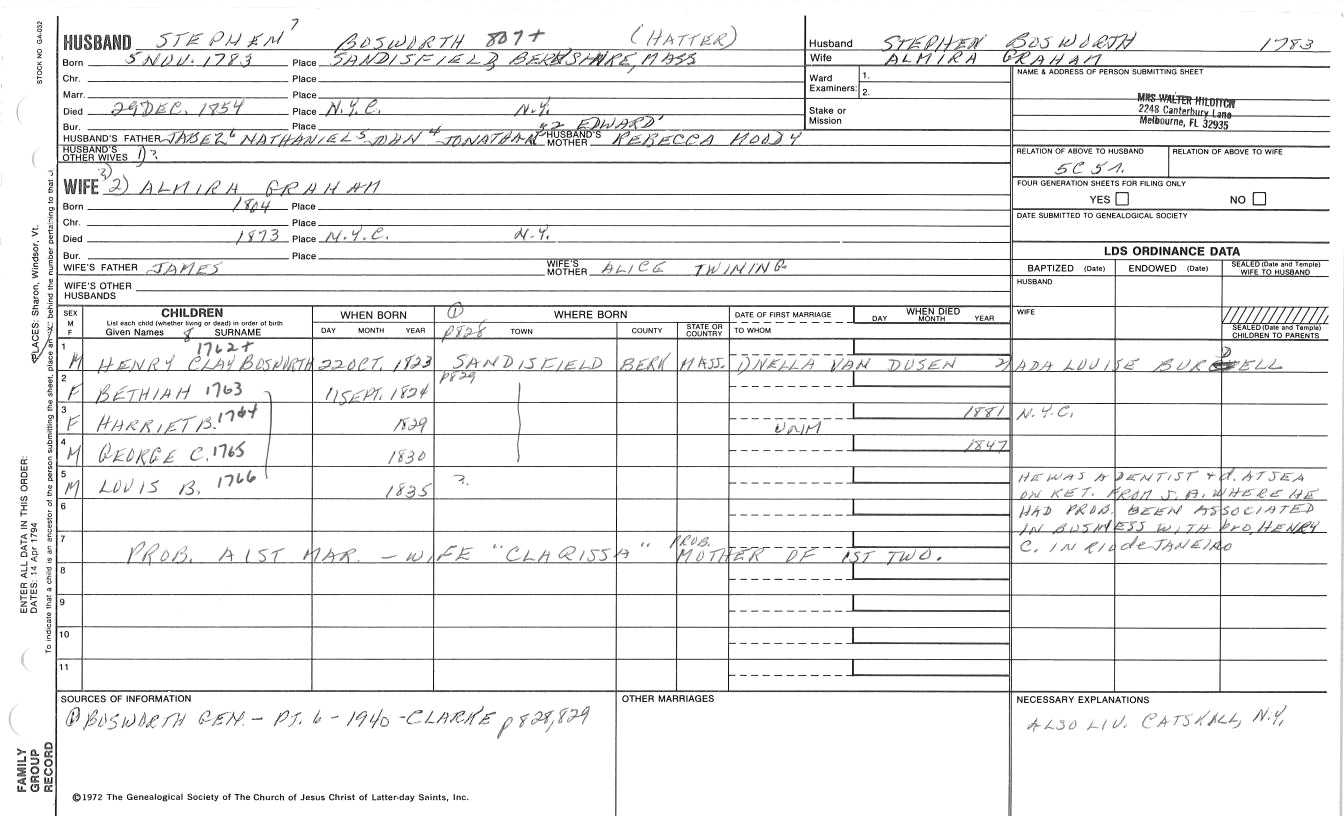 STOCK NO. GA-032
HUSBAND STEPHEN 7 BOSWORTH 807+ (HATTER)
Born 5 NOV. 1783 Place SANDISFIELD, BERKSHIRE, MASS
Chr. Place
Marr. Place
Died 29 DEC. 1854 Place N.Y.C. N.Y.
Bur. Place
HUSBAND'S FATHER JABEZ 6 NATHANIEL 5 JOHN 4 JONATHAN 3 2 EDWARD 1 HUSBAND'S MOTHER REBECCA MOODY
HUSBAND'S OTHER WIVES 1) ?
WIFE 2) ALMIRA GRAHAM
Born 1804 Place
Chr. Place
Died 1873 Place N.Y.C. N.Y.
Bur. Place
WIFE'S FATHER JAMES WIFE'S MOTHER ALICE TWINING
WIFE'S OTHER HUSBANDS
Husband STEPHEN BOSWORTH 1783
Wife ALMIRA GRAHAM
Ward Examiners: 1. 2.
Stake or Mission
NAME & ADDRESS OF PERSON SUBMITTING SHEET
MRS WALTER HILDITCH
2248 Canterbury Lane
Melbourne, FL 32935
RELATION OF ABOVE TO HUSBAND RELATION OF ABOVE TO WIFE
5C 5R.
FOUR GENERATION SHEETS FOR FILING ONLY
YES NO
DATE SUBMITTED TO GENEALOGICAL SOCIETY
LDS ORDINANCE DATA
BAPTIZED (Date) ENDOWED (Date) SEALED (Date and Temple) WIFE TO HUSBAND
HUSBAND
WIFE
SEALED (Date and Temple) CHILDREN TO PARENTS
SEX M F CHILDREN WHEN BORN ① WHERE BORN DATE OF FIRST MARRIAGE WHEN DIED
List each child (whether living or dead) in order of birth
Given Names 8 SURNAME DAY MONTH YEAR p828 TOWN COUNTY STATE OR COUNTRY TO WHOM DAY MONTH YEAR
1 M HENRY CLAY BOSWORTH 1762+ 22 OCT. 1823 SANDISFIELD BERK MASS. ORNELLA VAN DUSEN 2) ADA LOUISE BURDELL
2 F BETHIAH 1763 11 SEPT. 1824 p829
3 F HARRIET B. 1764 1829 UNM 1881 N.Y.C.
4 M GEORGE C. 1765 1830 1847
5 M LOUIS B. 1766 1835 ?
HE WAS A DENTIST & d. AT SEA
ON RET. FROM S.A. WHERE HE
HAD PROB. BEEN ASSOCIATED
IN BUSINESS WITH bro. HENRY
C. IN RIO de JANEIRO
6
7 PROB. A 1ST MAR. - WIFE "CLARISSA" PROB. MOTHER OF 1ST TWO.
8
9
10
11
SOURCES OF INFORMATION
① BOSWORTH GEN. - PT. 6 - 1940 - CLARKE p828,829
OTHER MARRIAGES
NECESSARY EXPLANATIONS
ALSO LIV. CATSKILL, N.Y.
©1972 The Genealogical Society of The Church of Jesus Christ of Latter-day Saints, Inc.
FAMILY GROUP RECORD
ENTER ALL DATA IN THIS ORDER:
DATES: 14 Apr 1794
PLACES: Sharon, Windsor, Vt.